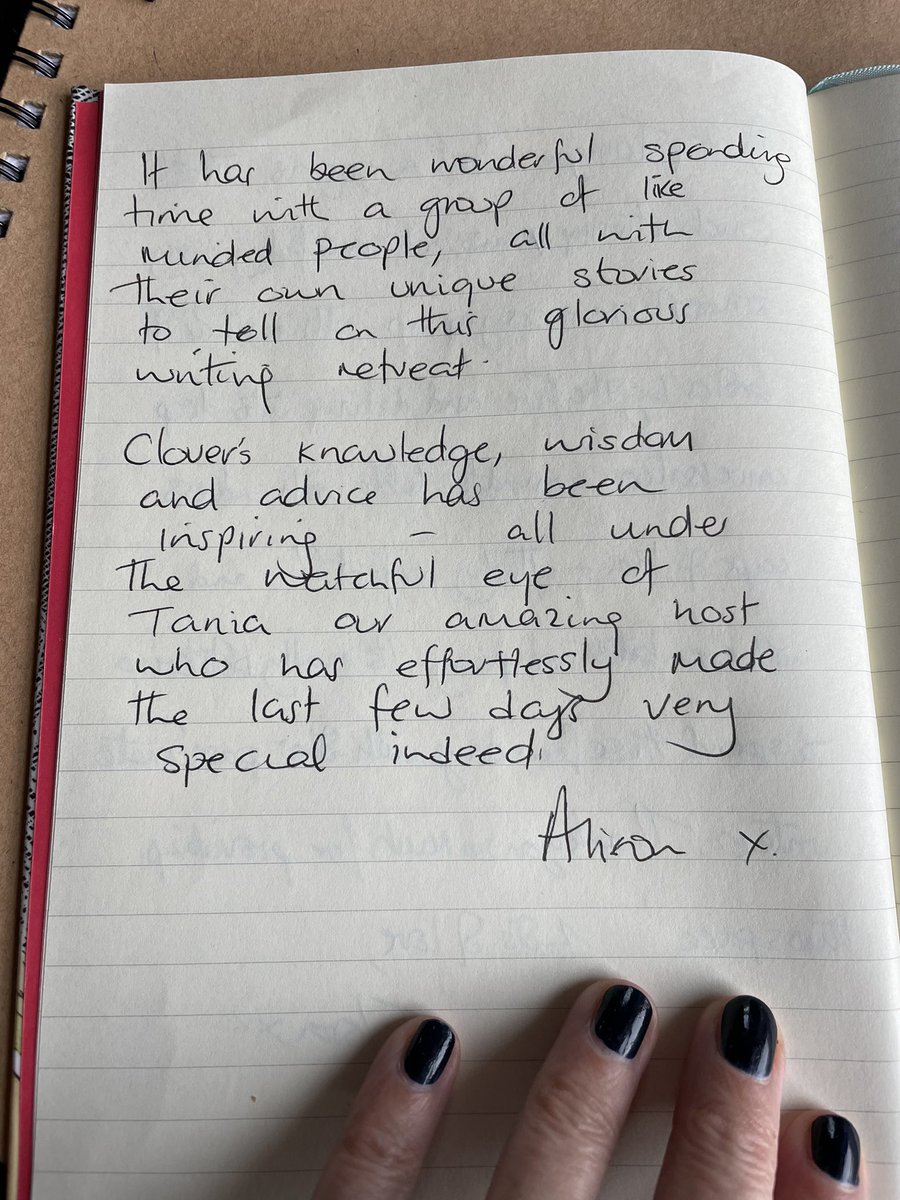 It has been wonderful spending
time with a group of like
minded people, all with
their own unique stories
to tell on this glorious
writing retreat.
Clover's knowledge, wisdom
and advice has been
inspiring - all under
the watchful eye of
Tania our amazing host
who has effortlessly made
the last few days very
special indeed.
Alison x.